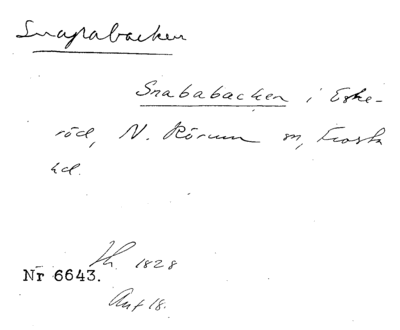 Snapabacken
Snababacken i Eske-
röd, N. Rörum sn, Frosta
hd.
Th. 1828
Nr 6643.
Ant 18.